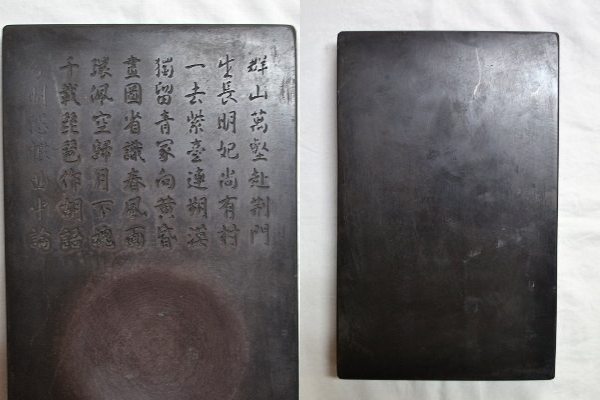 群山萬壑赴荆門
生長明妃尚有村
一去紫臺連朔漠
獨留青冢向黃昏
畫圖省識春風面
環佩空歸月下魂
千載琵琶作胡語
分明怨恨曲中論